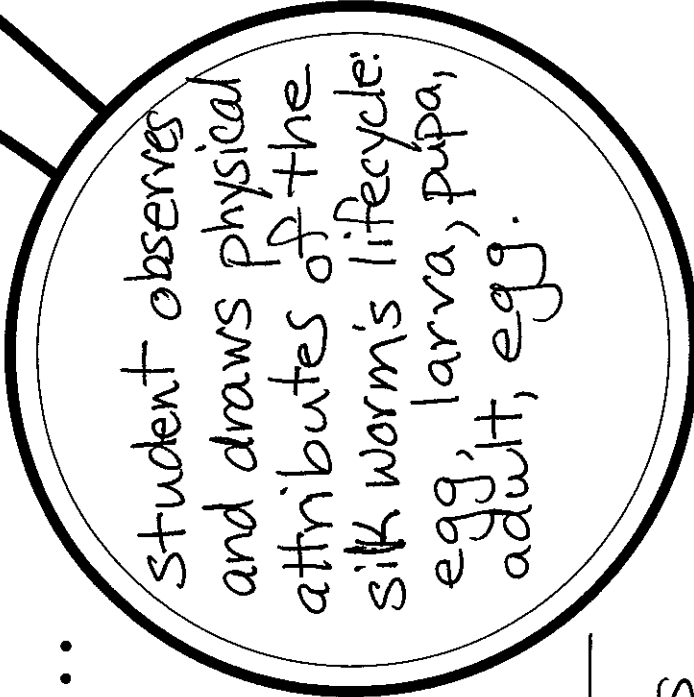 student observes
and draws physical
attributes of the
silk worm's lifecycle:
egg, larva, pupa,
adult, egg.